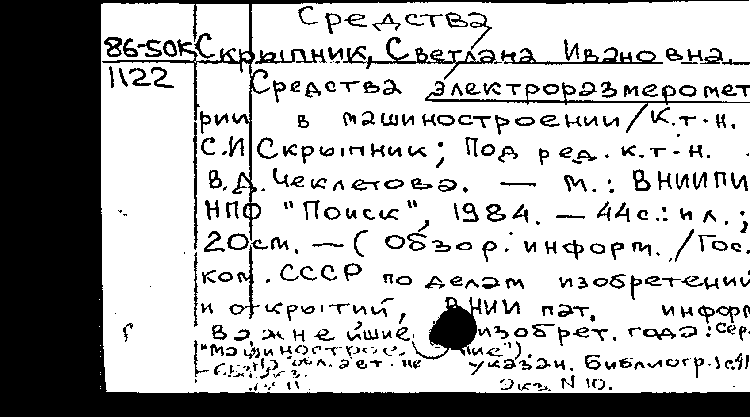 Средства
86-50К Скрыпник, Светлана Ивановна.
1122 Средства электроразмеромет
рии в машиностроении/К.т.н.
С.И Скрыпник; Под ред. к.т.н.
В.Д. Чеклетова. — М.: ВНИИПИ
НПО "Поиск", 1984. — 44с.: ил.;
20см. — (Обзор. информ. /Гос.
ком. СССР по делам изобретений
и открытий, ВНИИ пат. информ
Важнейшие изобрет. года: Сер.
"Машиностроение").
не указан. Библиогр.: с.41
Экз. N 10.